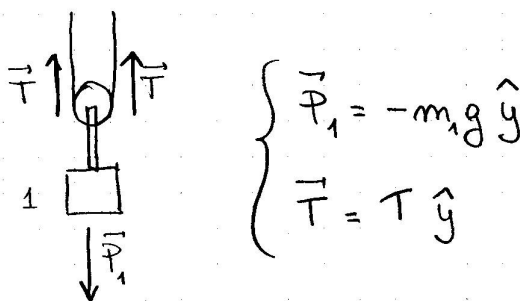 T⃗ T⃗
1
P⃗₁
P⃗₁ = -m₁g ŷ
T⃗ = T ŷ